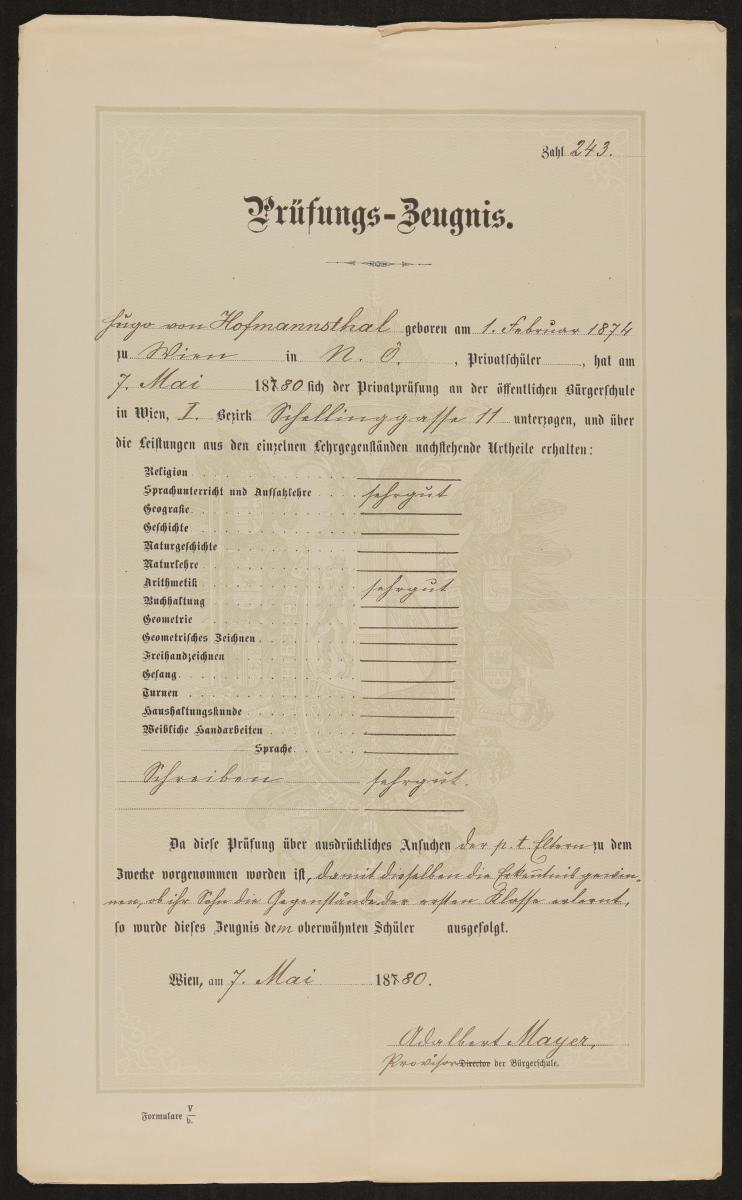 Zahl 243.
Prüfungs-Zeugnis.
Hugo von Hofmannsthal geboren am 1. Februar 1874
zu Wien in N. Ö. , Privatschüler , hat am
7. Mai 18780 sich der Privatprüfung an der öffentlichen Bürgerschule
in Wien, I. Bezirk Schellinggasse 11 unterzogen, und über
die Leistungen aus den einzelnen Lehrgegenständen nachstehende Urtheile erhalten:
Religion
Sprachunterricht und Aufsatzlehre sehr gut
Geografie
Geschichte
Naturgeschichte
Naturlehre
Arithmetik sehr gut
Buchhaltung
Geometrie
Geometrisches Zeichnen
Freihandzeichnen
Gesang
Turnen
Haushaltungskunde
Weibliche Handarbeiten
Sprache
Schreiben sehr gut.
Da diese Prüfung über ausdrückliches Ansuchen der p. t. Eltern zu dem
Zwecke vorgenommen worden ist, damit dieselben die Erkenntnis gewin-
nen, ob ihr Sohn die Gegenstände der ersten Klasse erlernt,
so wurde dieses Zeugnis dem oberwähnten Schüler ausgefolgt.
Wien, am 7. Mai 18780.
Adalbert Mayer,
Provisor Director der Bürgerschule.
Formulare V/b.